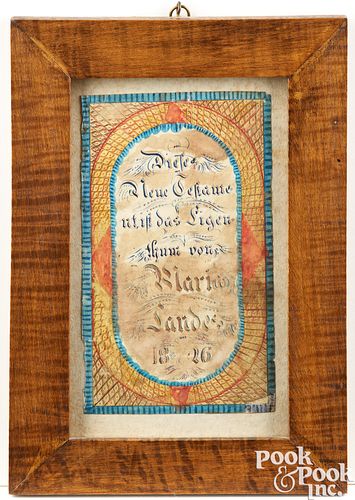 Dieses
Neue Testame
nt ist das Eigen
thum von
Maria
Landes
18 26
POOK
& POOK
INC.